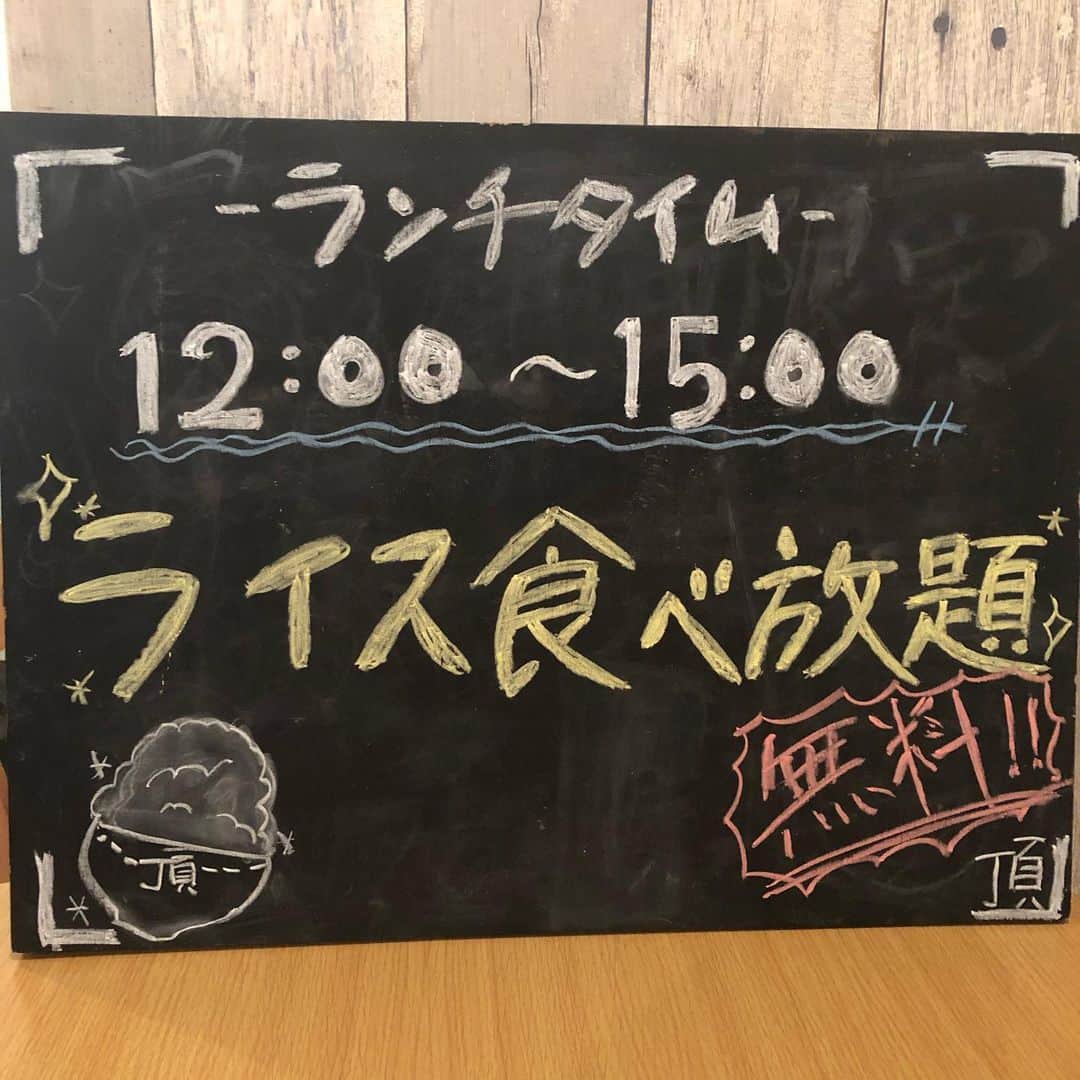 -ランチタイム-
12:00～15:00
ライス食べ放題
無料!!
頂
頂